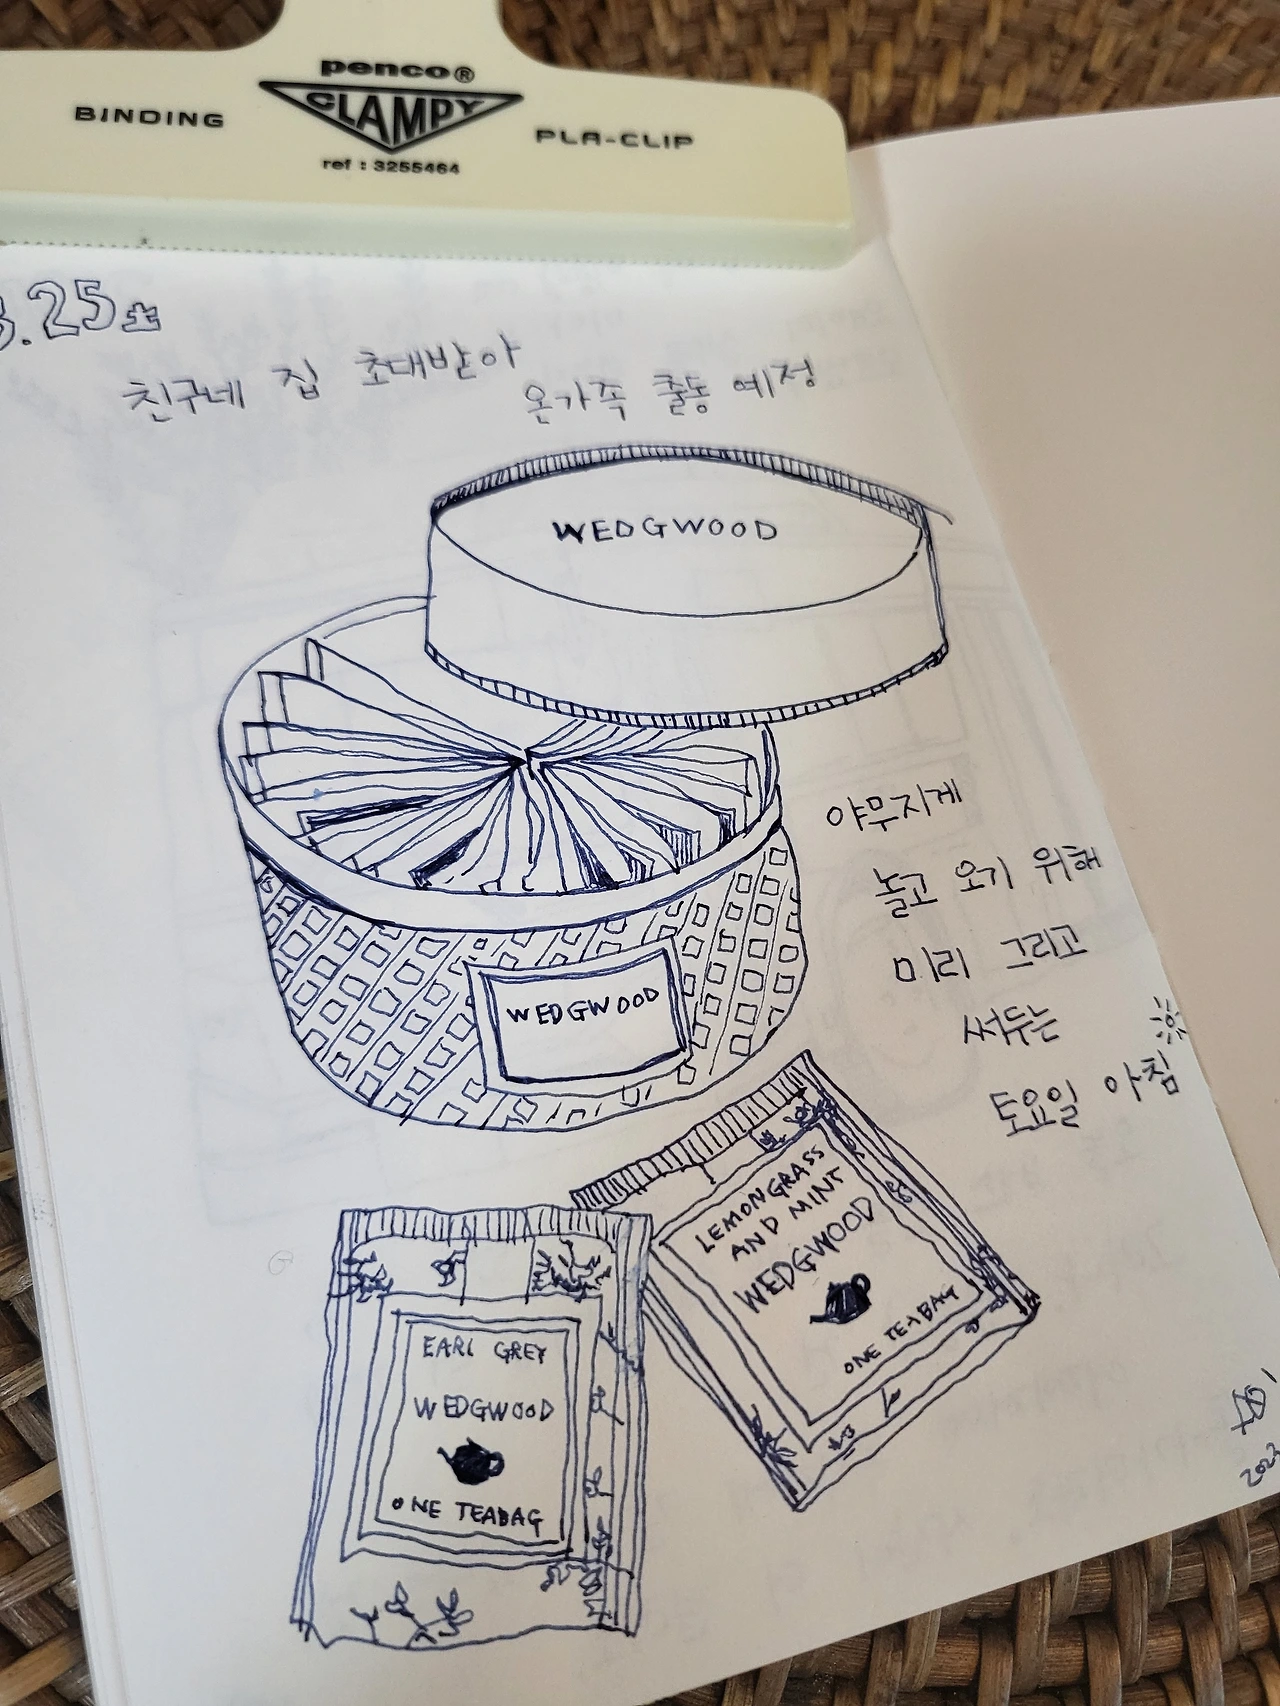 penco®
CLAMPY
BINDING
PLA-CLIP
ref : 3255464
3.25土
친구네 집 초대받아
온가족 출동 예정
WEDGWOOD
야무지게
놀고 오기 위해
미리 그리고
써두는
토요일 아침
WEDGWOOD
LEMONGRASS
AND MINT
WEDGWOOD
ONE TEABAG
EARL GREY
WEDGWOOD
ONE TEABAG